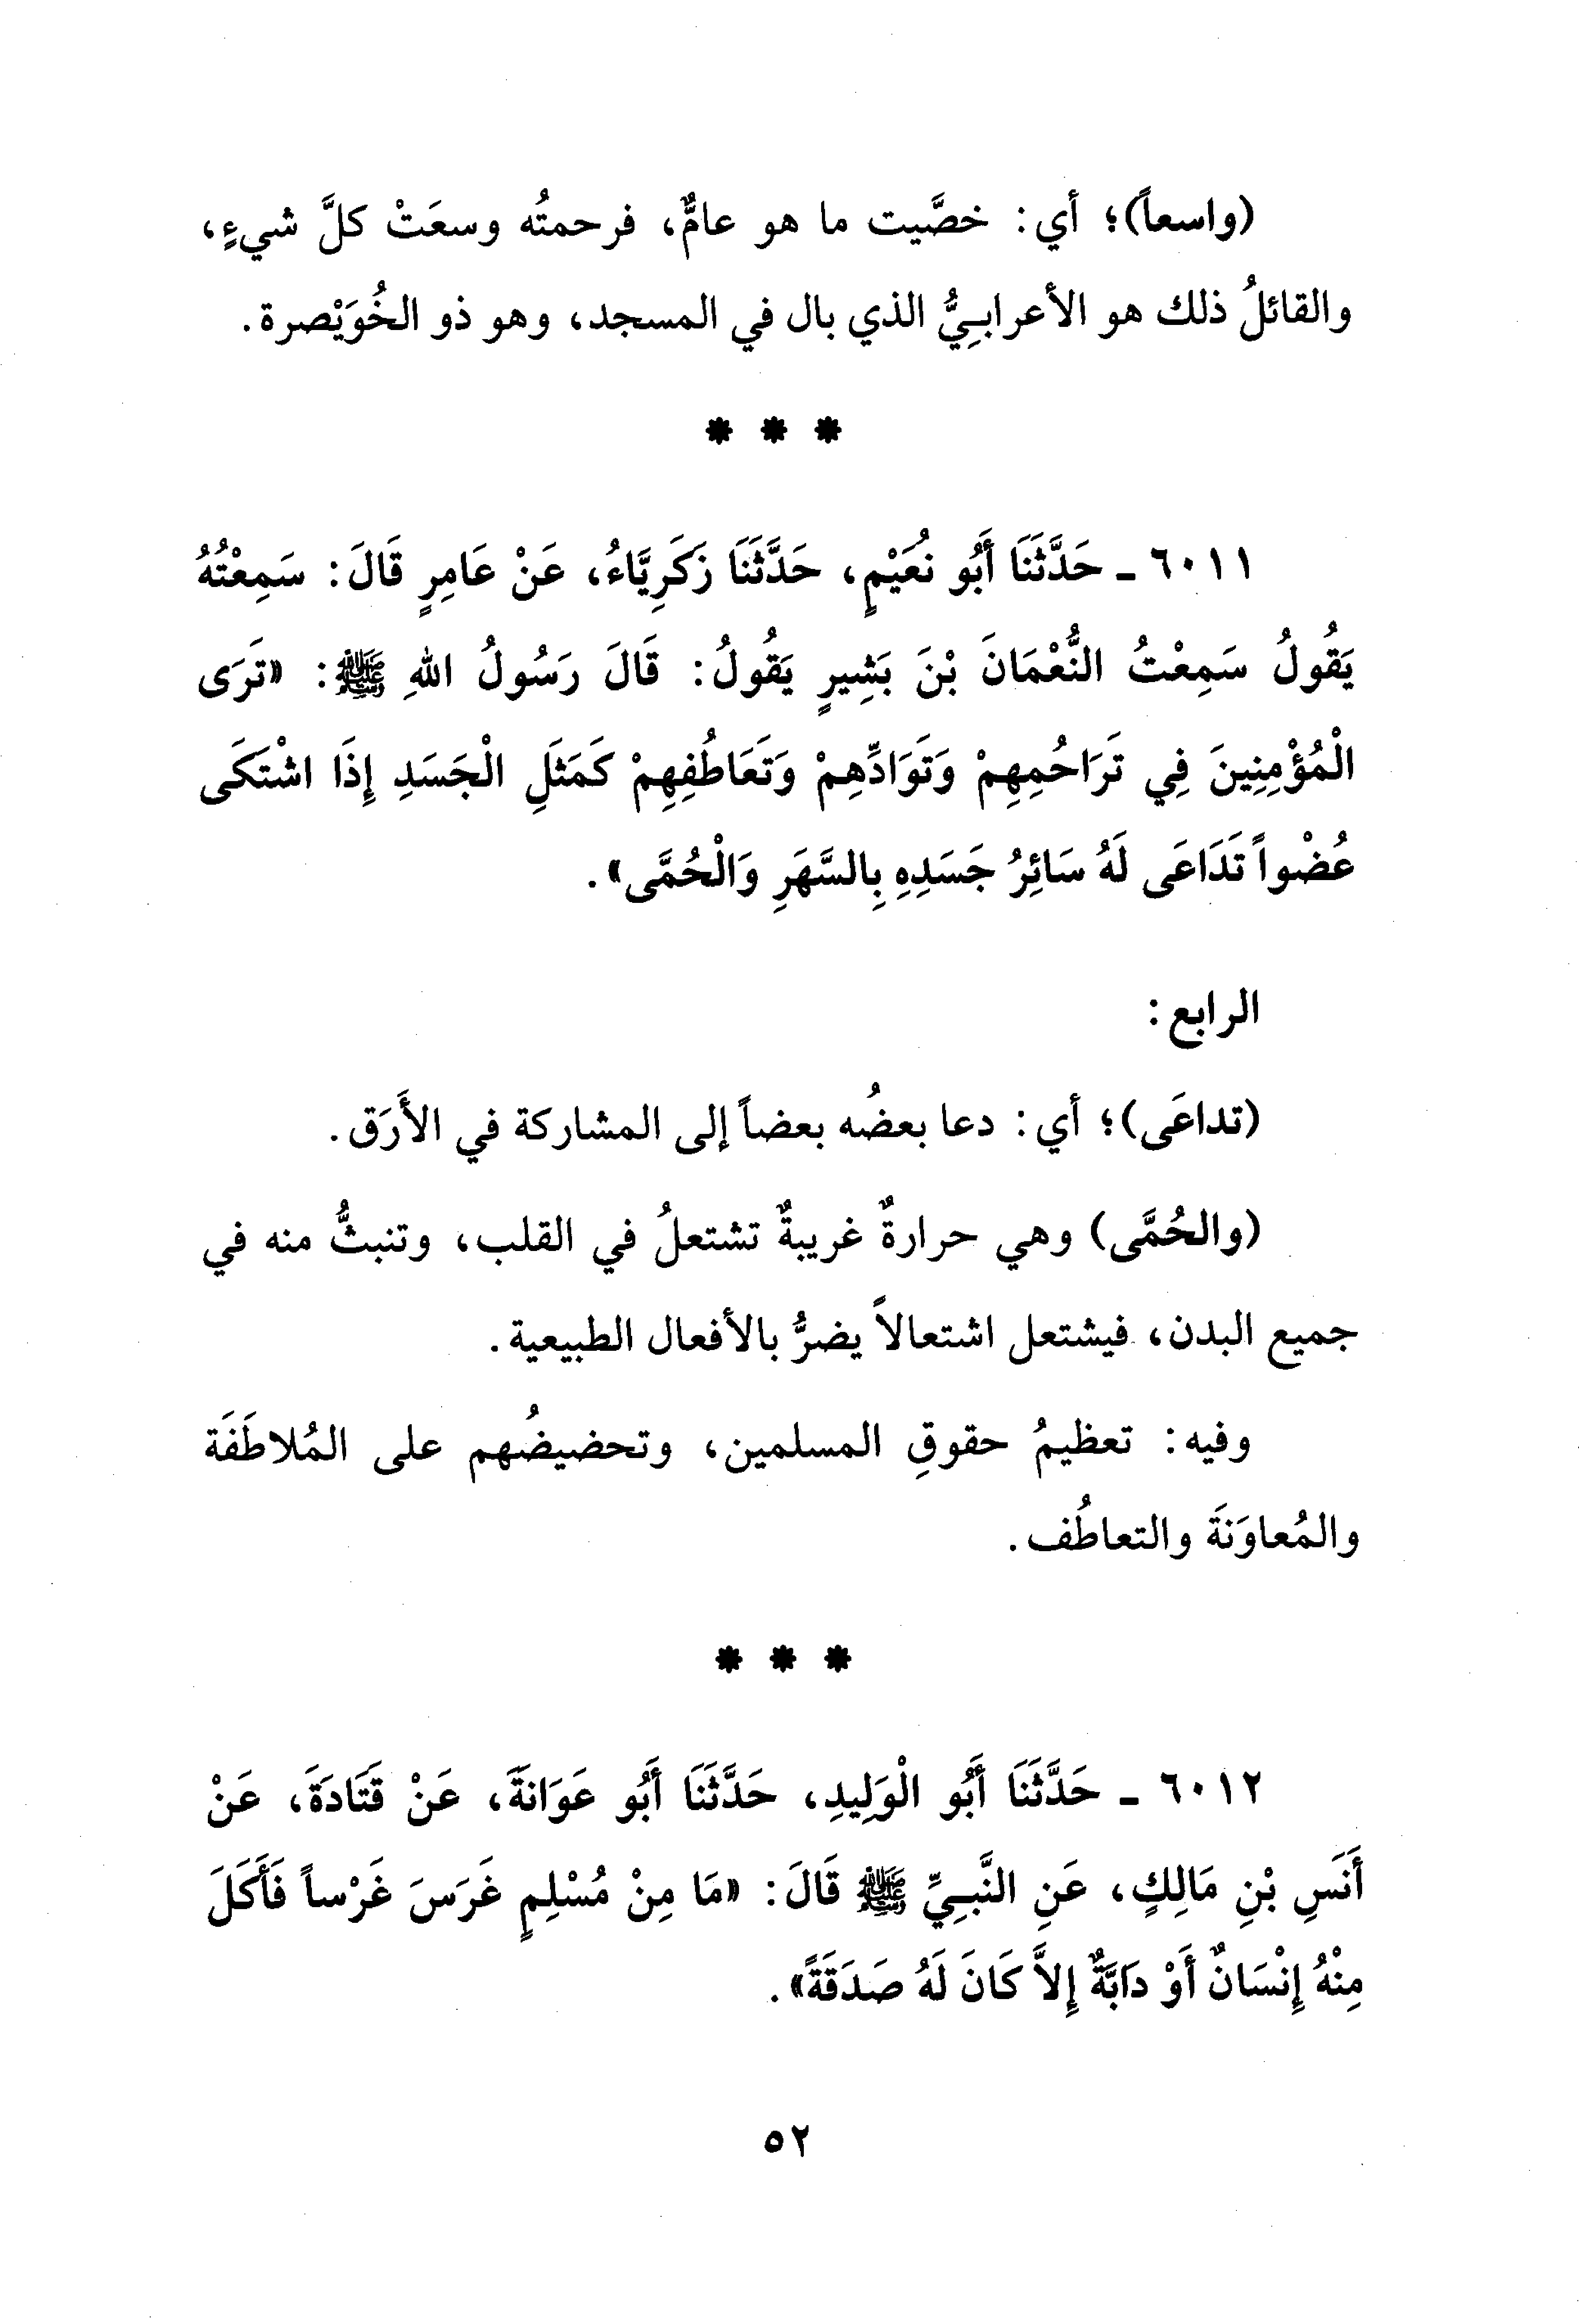 (واسعاً)؛ أي: خصَّيت ما هو عامٌّ، فرحمتُه وسعَتْ كلَّ شيءٍ،
والقائلُ ذلك هو الأعرابيُّ الذي بال في المسجد، وهو ذو الخُوَيْصرة.
* * *
٦٠١١ ـ حَدَّثَنَا أَبُو نُعَيْمٍ، حَدَّثَنَا زَكَرِيَّاءُ، عَنْ عَامِرٍ قَالَ: سَمِعْتُهُ
يَقُولُ سَمِعْتُ النُّعْمَانَ بْنَ بَشِيرٍ يَقُولُ: قَالَ رَسُولُ اللهِ ﷺ: «تَرَى
الْمُؤْمِنِينَ فِي تَرَاحُمِهِمْ وَتَوَادِّهِمْ وَتَعَاطُفِهِمْ كَمَثَلِ الْجَسَدِ إِذَا اشْتَكَى
عُضْواً تَدَاعَى لَهُ سَائِرُ جَسَدِهِ بِالسَّهَرِ وَالْحُمَّى».
الرابع:
(تداعَى)؛ أي: دعا بعضُه بعضاً إلى المشاركة في الأَرَق.
(والحُمَّى) وهي حرارةٌ غريبةٌ تشتعلُ في القلب، وتنبثُّ منه في
جميع البدن، فيشتعل اشتعالاً يضرُّ بالأفعال الطبيعية.
وفيه: تعظيمُ حقوقِ المسلمين، وتحضيضُهم على المُلاطَفَة
والمُعاوَنَة والتعاطُف.
* * *
٦٠١٢ ـ حَدَّثَنَا أَبُو الْوَلِيدِ، حَدَّثَنَا أَبُو عَوَانَةَ، عَنْ قَتَادَةَ، عَنْ
أَنَسِ بْنِ مَالِكٍ، عَنِ النَّبِيِّ ﷺ قَالَ: «مَا مِنْ مُسْلِمٍ غَرَسَ غَرْساً فَأَكَلَ
مِنْهُ إِنْسَانٌ أَوْ دَابَّةٌ إِلاَّ كَانَ لَهُ صَدَقَةً».
٥٢